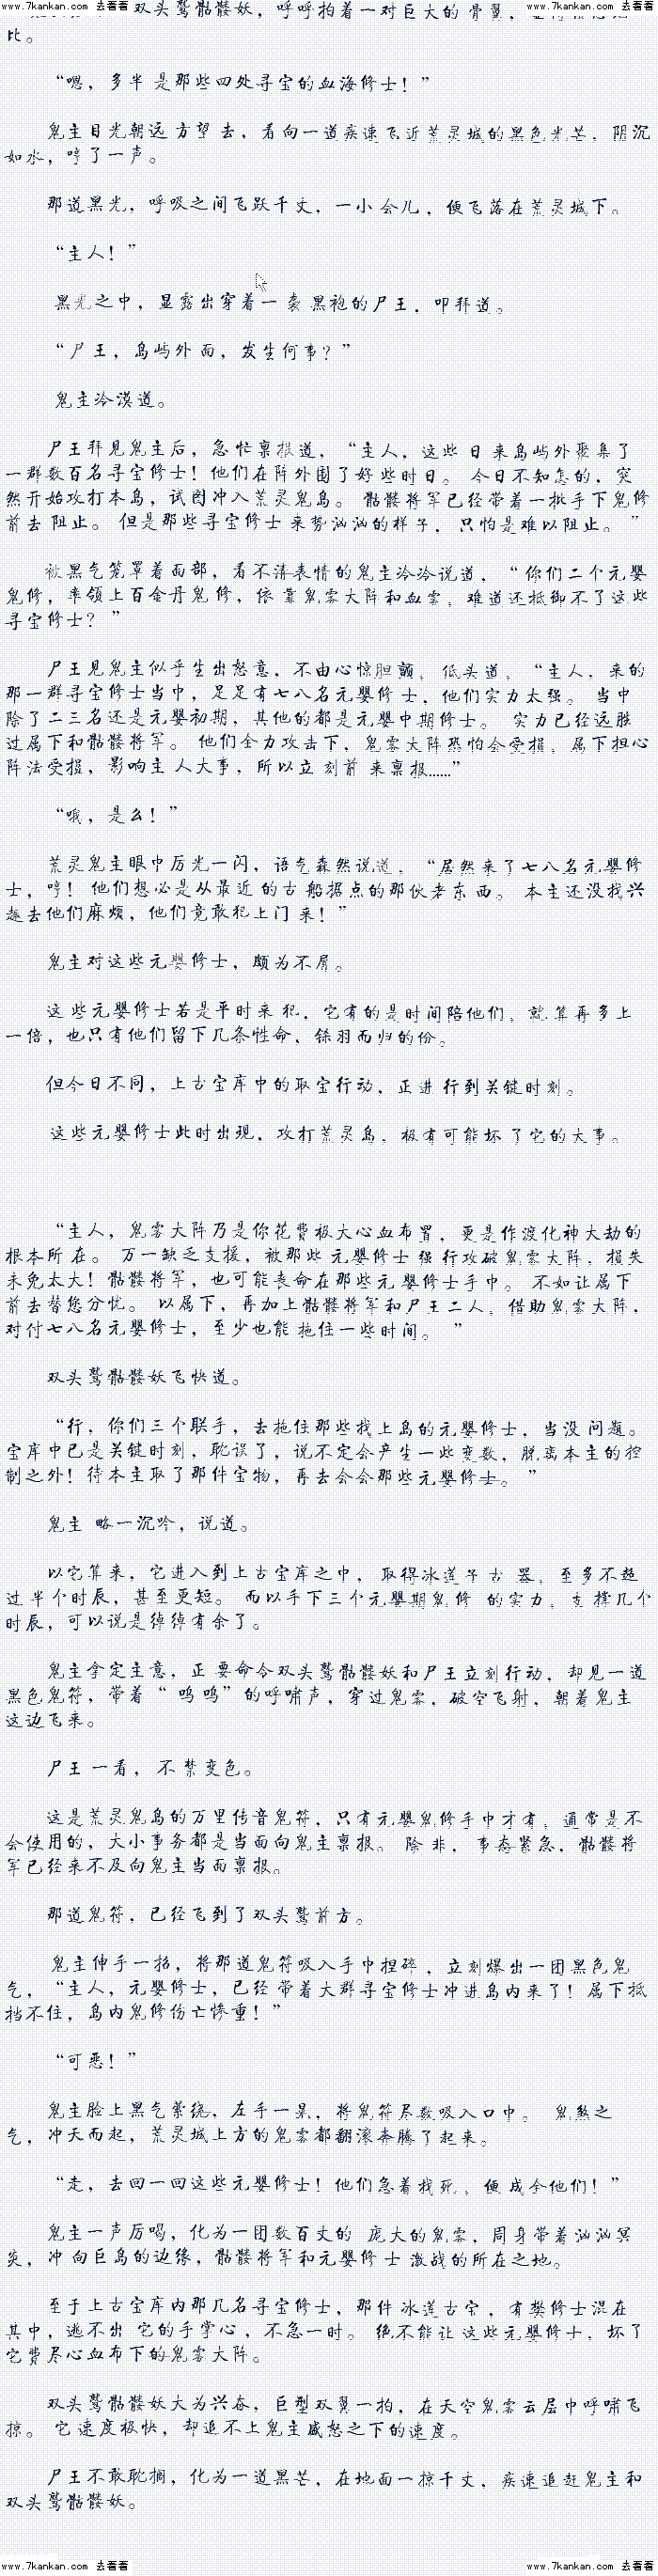 www.7kankan.com 去看看 www.7kankan.com 去看看
双头鹫骷髅妖，呼呼拍着一对巨大的骨翼，
比。
“嗯，多半是那些四处寻宝的血海修士！”
鬼主目光朝远方望去，看向一道疾速飞近荒灵城的黑色光芒，阴沉
如水，哼了一声。
那道黑光，呼吸之间飞跃千丈，一小会儿，便飞落在荒灵城下。
“主人！”
黑光之中，显露出穿着一袭黑袍的尸王，叩拜道。
“尸王，岛屿外面，发生何事？”
鬼主冷漠道。
尸王拜见鬼主后，急忙禀报道，“主人，这些日来岛屿外聚集了
一群数百名寻宝修士！他们在阵外围了好些时日。今日不知怎的，突
然开始攻打本岛，试图冲入荒灵鬼岛。骷髅将军已经带着一批手下鬼修
前去阻止。但是那些寻宝修士来势汹汹的样子，只怕是难以阻止。”
被黑气笼罩着面部，看不清表情的鬼主冷冷说道，“你们二个元婴
鬼修，率领上百金丹鬼修，依靠鬼雾大阵和血雾，难道还抵御不了这些
寻宝修士？”
尸王见鬼主似乎生出怒意，不由心惊胆颤，低头道，“主人，来的
那一群寻宝修士当中，足足有七八名元婴修士，他们实力太强。当中
除了二三名还是元婴初期，其他的都是元婴中期修士。实力已经远胜
过属下和骷髅将军。他们全力攻击下，鬼雾大阵恐怕会受损，属下担心
阵法受损，影响主人大事，所以立刻前来禀报……”
“哦，是么！”
荒灵鬼主眼中厉光一闪，语气森然说道，“居然来了七八名元婴修
士，哼！他们想必是从最近的古船据点的那伙老东西。本主还没找兴
趣去他们麻烦，他们竟敢犯上门来！”
鬼主对这些元婴修士，颇为不屑。
这些元婴修士若是平时来犯，它有的是时间陪他们，就算再多上
一倍，也只有他们留下几条性命，铩羽而归的份。
但今日不同，上古宝库中的取宝行动，正进行到关键时刻。
这些元婴修士此时出现，攻打荒灵岛，极有可能坏了它的大事。
“主人，鬼雾大阵乃是你花费极大心血布置，更是作渡化神大劫的
根本所在。万一缺乏支援，被那些元婴修士强行攻破鬼雾大阵，损失
未免太大！骷髅将军，也可能丧命在那些元婴修士手中。不如让属下
前去替您分忧。以属下，再加上骷髅将军和尸王二人，借助鬼雾大阵，
对付七八名元婴修士，至少也能拖住一些时间。”
双头鹫骷髅妖飞快道。
“行，你们三个联手，去拖住那些找上岛的元婴修士，当没问题。
宝库中已是关键时刻，耽误了，说不定会产生一些变数，脱离本主的控
制之外！待本主取了那件宝物，再去会会那些元婴修士。”
鬼主略一沉吟，说道。
以它算来，它进入到上古宝库之中，取得冰莲子古器，至多不超
过半个时辰，甚至更短。而以手下三个元婴期鬼修的实力，支撑几个
时辰，可以说是绰绰有余了。
鬼主拿定主意，正要命令双头鹫骷髅妖和尸王立刻行动，却见一道
黑色鬼符，带着“呜呜”的呼啸声，穿过鬼雾，破空飞射，朝着鬼主
这边飞来。
尸王一看，不禁变色。
这是荒灵鬼岛的万里传音鬼符，只有元婴鬼修手中才有，通常是不
会使用的，大小事务都是当面向鬼主禀报。除非，事态紧急，骷髅将
军已经来不及向鬼主当面禀报。
那道鬼符，已经飞到了双头鹫前方。
鬼主伸手一招，将那道鬼符吸入手中捏碎，立刻爆出一团黑色鬼
气，“主人，元婴修士，已经带着大群寻宝修士冲进岛内来了！属下抵
挡不住，岛内鬼修伤亡惨重！”
“可恶！”
鬼主脸上黑气萦绕，左手一晃，将鬼符尽数吸入口中。鬼煞之
气，冲天而起，荒灵城上方的鬼雾都翻滚奔腾了起来。
“走，去回一回这些元婴修士！他们急着找死，便成全他们！”
鬼主一声厉喝，化为一团数百丈的庞大的鬼雾，周身带着汹汹冥
炎，冲向巨岛的边缘，骷髅将军和元婴修士激战的所在之地。
至于上古宝库内那几名寻宝修士，那件冰莲古宝，有樊修士混在
其中，逃不出它的手掌心，不急一时。绝不能让这些元婴修士，坏了
它费尽心血布下的鬼雾大阵。
双头鹫骷髅妖大为兴奋，巨型双翼一拍，在天空鬼雾云层中呼啸飞
掠。它速度极快，却追不上鬼主盛怒之下的速度。
尸王不敢耽搁，化为一道黑芒，在地面一掠千丈，疾速追赶鬼主和
双头鹫骷髅妖。
www.7kankan.com 去看看 www.7kankan.com 去看看